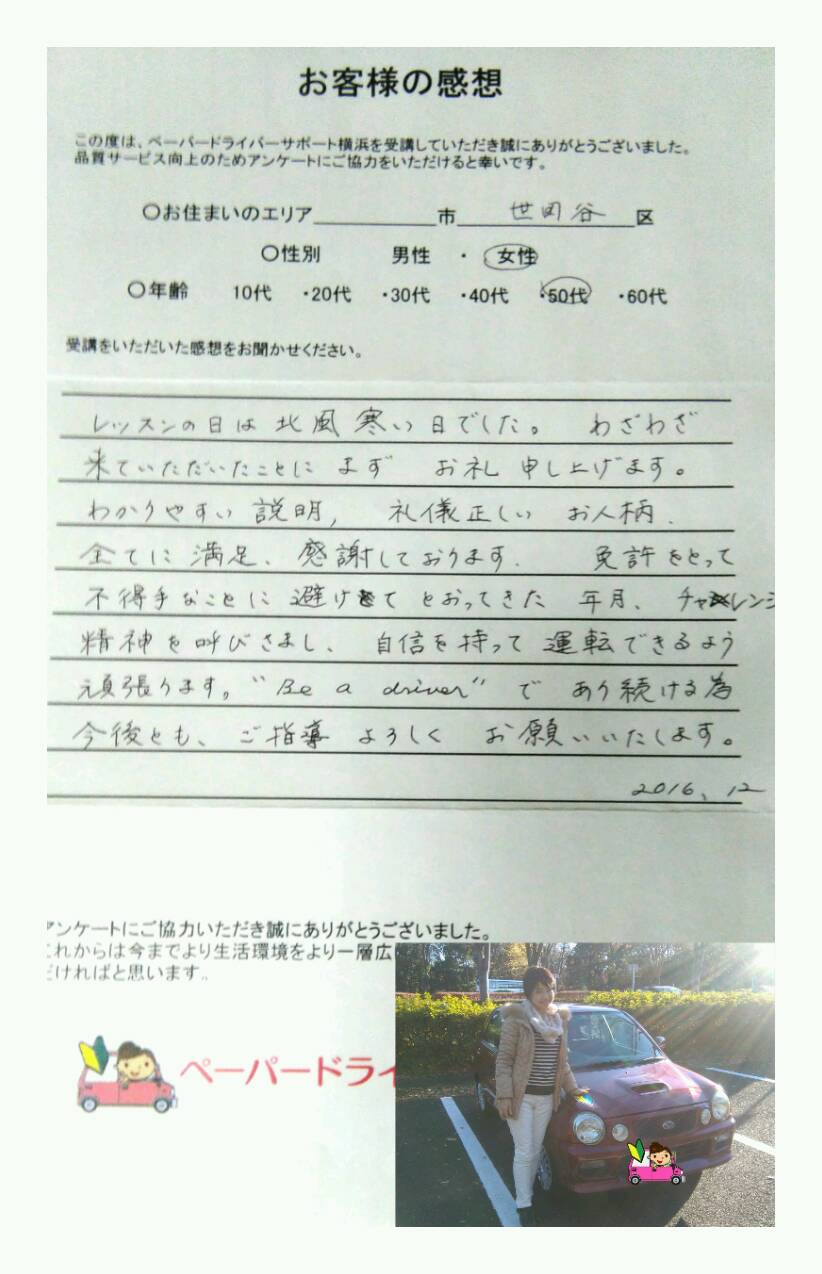 お客様の感想
この度は、ペーパードライバーサポート横浜を受講していただき誠にありがとうございました。
品質サービス向上のためアンケートにご協力をいただけると幸いです。
〇お住まいのエリア 市 世田谷 区
〇性別 男性 ・ 女性
〇年齢 10代 ・20代 ・30代 ・40代 ・50代 ・60代
受講をいただいた感想をお聞かせください。
レッスンの日は北風寒い日でした。 わざわざ
来ていただいたことに まず お礼申し上げます。
わかりやすい説明, 礼儀正しい お人柄.
全てに満足、感謝しております. 免許をとって
不得手なことに避けて とおってきた 年月、チャレンジ
精神を呼びさまし、自信を持って運転できるよう
頑張ります。"Be a driver" で あり続ける為
今後とも、ご指導 よろしく お願いいたします。
2016、12
アンケートにご協力いただき誠にありがとうございました。
これからは今までより生活環境をより一層広
だければと思います..
ペーパードライ